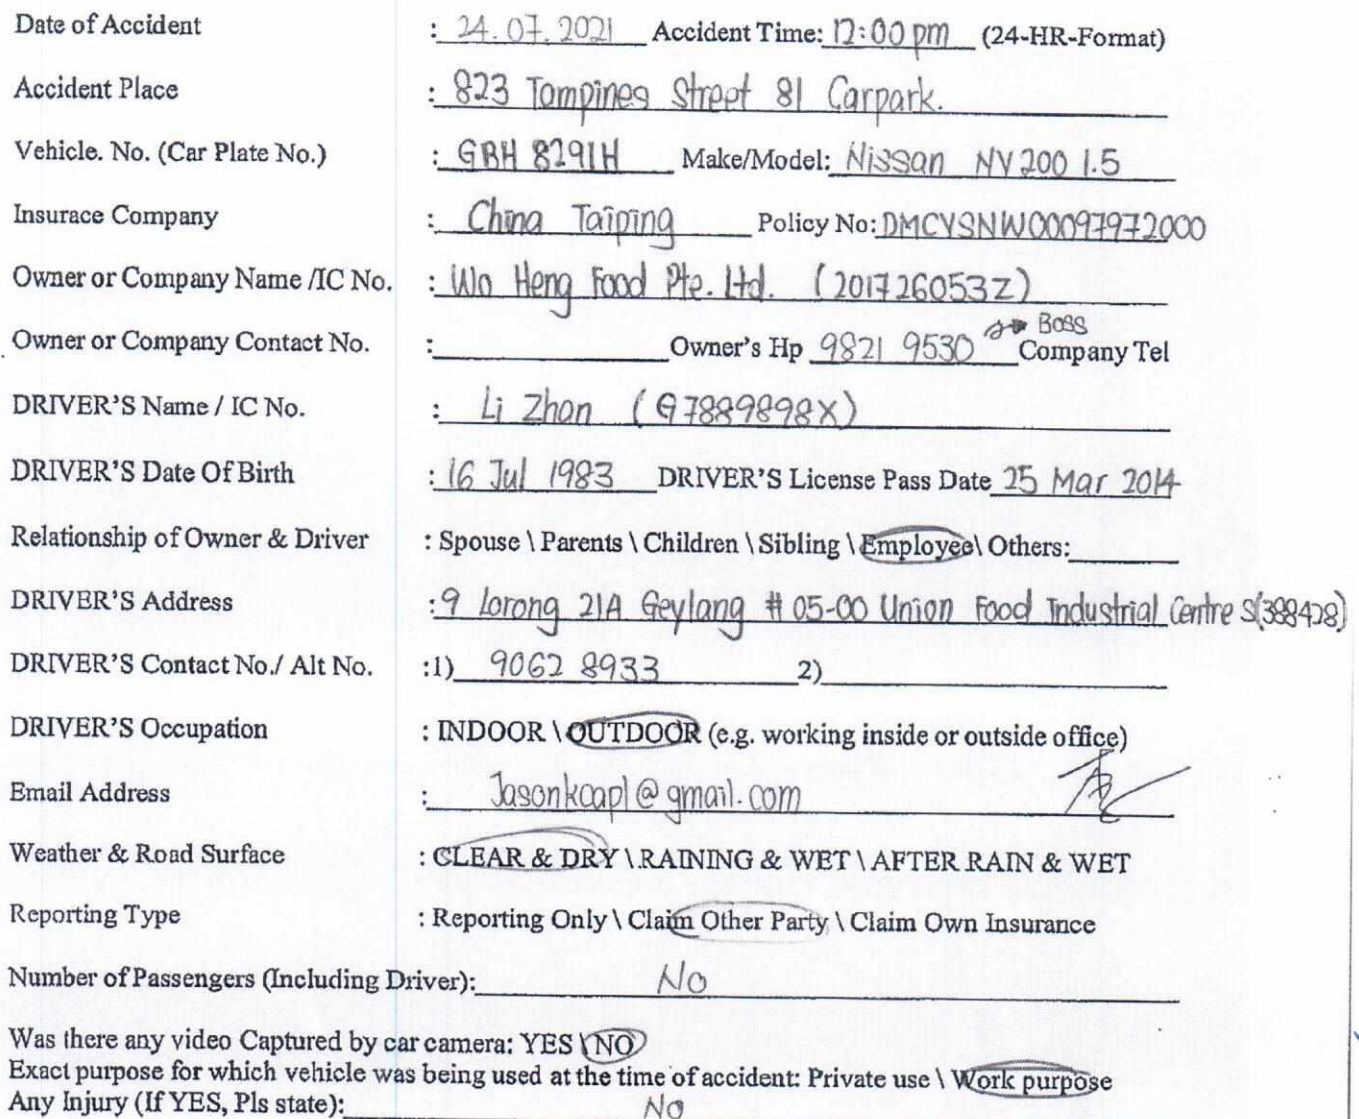 Date of Accident : 24.07.2021 Accident Time: 12:00 pm (24-HR-Format)
Accident Place : 823 Tampines Street 81 Carpark.
Vehicle. No. (Car Plate No.) : GBH 8291H Make/Model: Nissan NV200 1.5
Insurace Company : China Taiping Policy No: DMCYSNW00097972000
Owner or Company Name /IC No. : Wo Heng Food Pte. Ltd. (201726053Z)
Boss
Owner or Company Contact No. : Owner's Hp 9821 9530 Company Tel
DRIVER'S Name / IC No. : Li Zhan (G7889898X)
DRIVER'S Date Of Birth : 16 Jul 1983 DRIVER'S License Pass Date 25 Mar 2014
Relationship of Owner & Driver : Spouse \ Parents \ Children \ Sibling \ Employee \ Others:
DRIVER'S Address : 9 Lorong 21A Geylang # 05-00 Union Food Industrial Centre S(388428)
DRIVER'S Contact No./ Alt No. :1) 9062 8933 2)
DRIVER'S Occupation : INDOOR \ OUTDOOR (e.g. working inside or outside office)
Email Address : Jasonkcapl@gmail.com
Weather & Road Surface : CLEAR & DRY \ RAINING & WET \ AFTER RAIN & WET
Reporting Type : Reporting Only \ Claim Other Party \ Claim Own Insurance
Number of Passengers (Including Driver): No
Was there any video Captured by car camera: YES \ NO
Exact purpose for which vehicle was being used at the time of accident: Private use \ Work purpose
Any Injury (If YES, Pls state): No